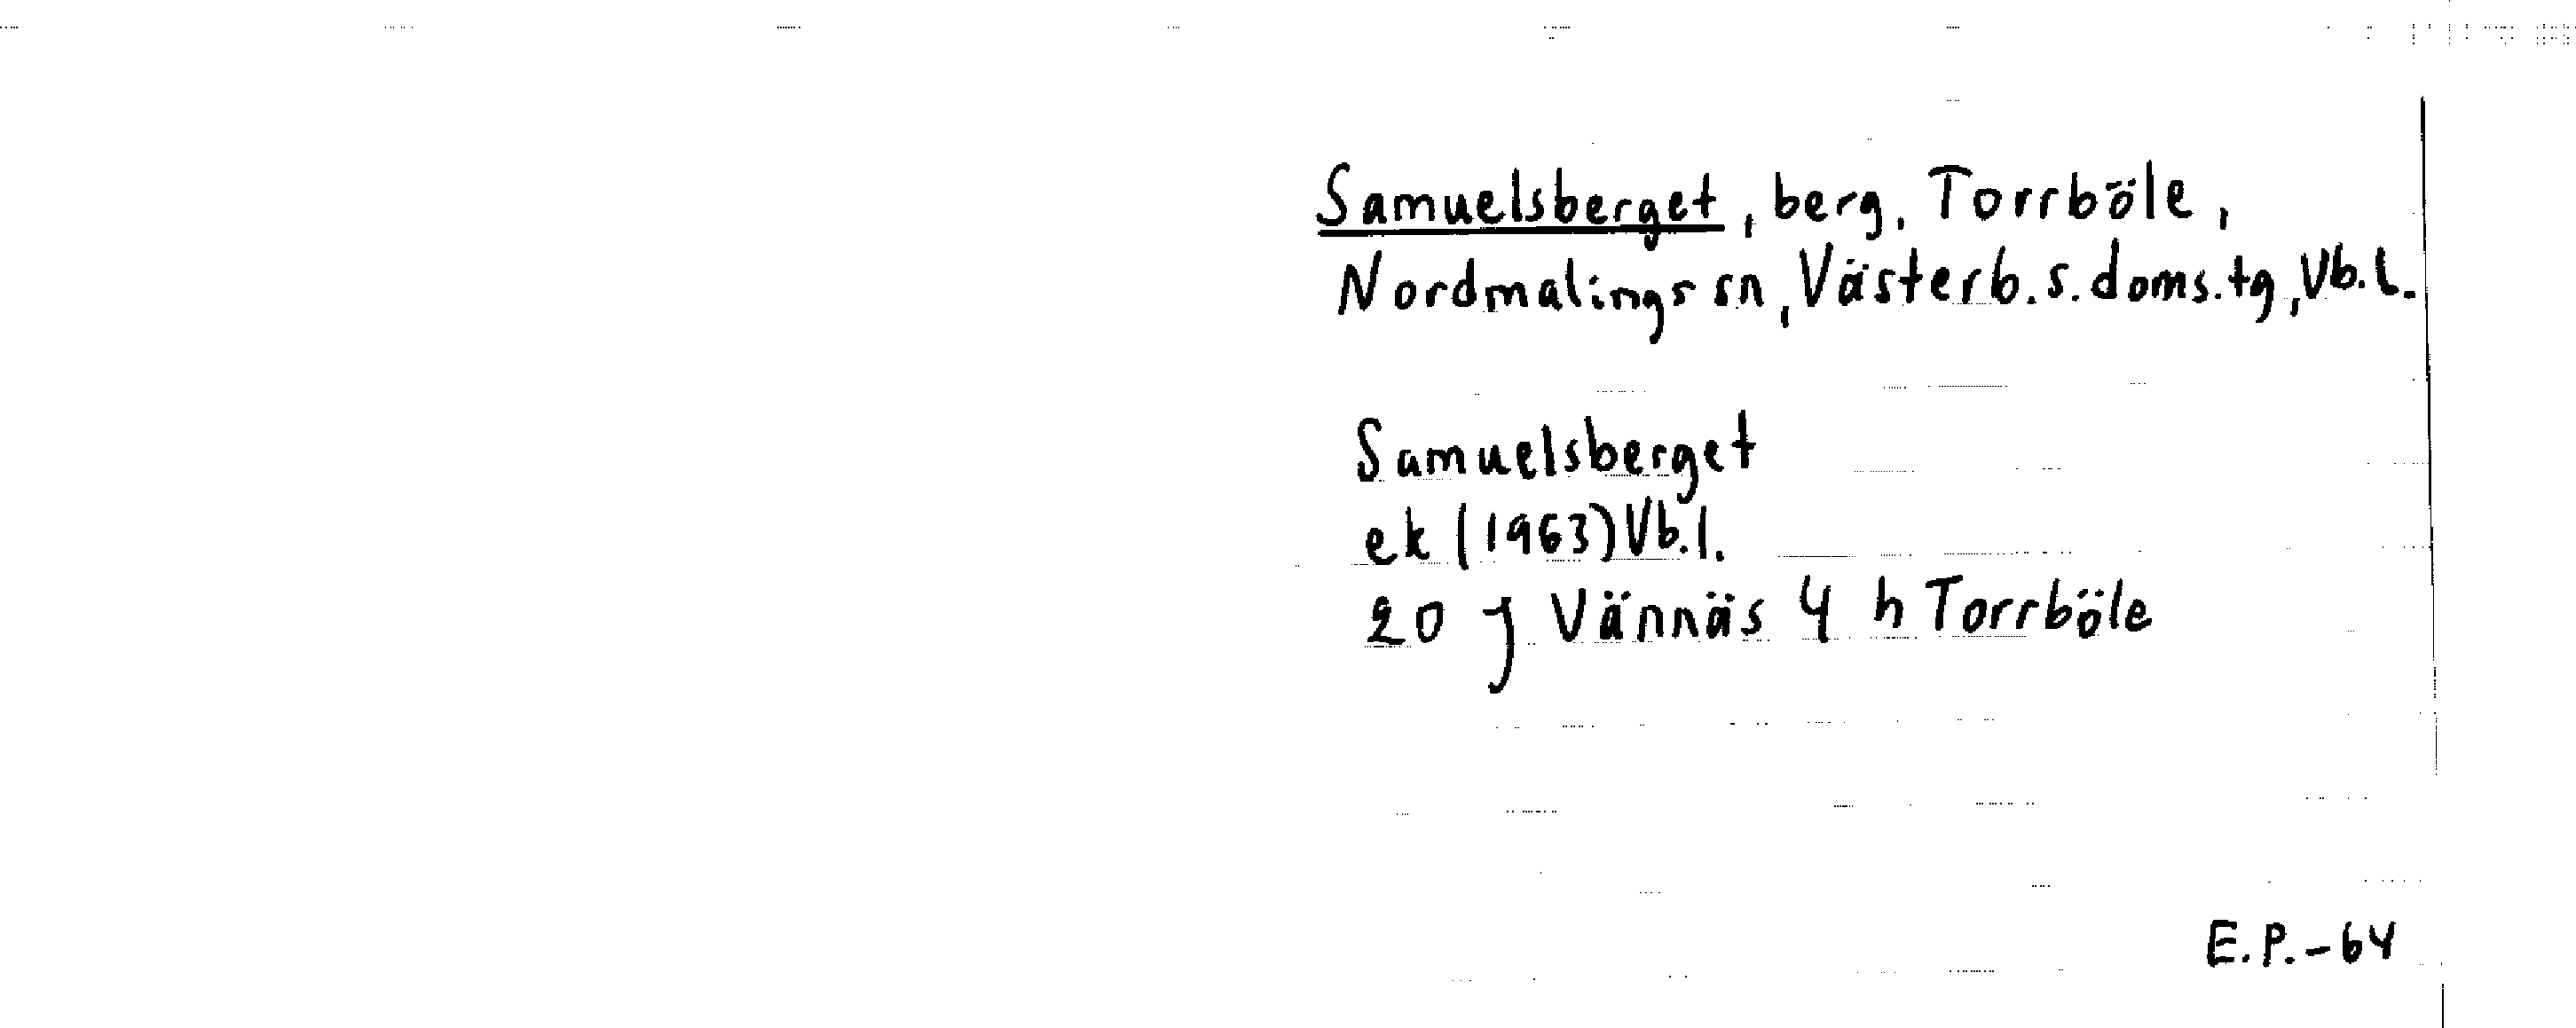 Samuelsberget, berg, Torrböle,
Nordmalings sn, Västerb. s. doms. tg, Vb. l.
Samuelsberget
ek (1963) Vb. l.
20 J Vännäs 4 h Torrböle
E.P.-64